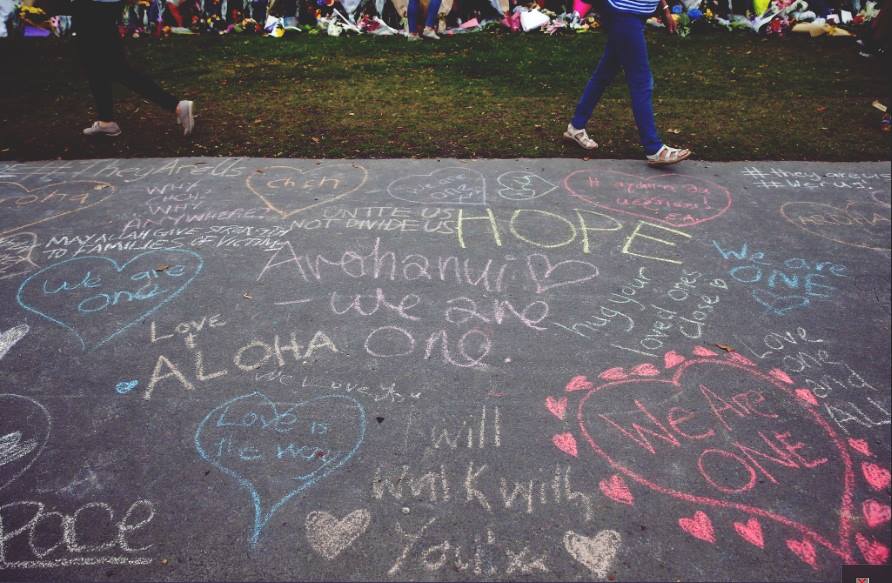 #theyareus
#theyareus
#werus!
WHY
SUCH
WHY
ANYWHERE?
UNITE US
NOT DIVIDE US
HOPE
AROHA
MAY ALLAH GIVE STRENGTH
TO FAMILIES OF VICTIMS
Arohanui
- we are
one
We are
one
We are
ONE
hug your
loved ones
close
LOVE
ALOHA
We Love you
Love
one
and
ALL
Love is
the way
I will
walk with
You x
WE ARE
ONE